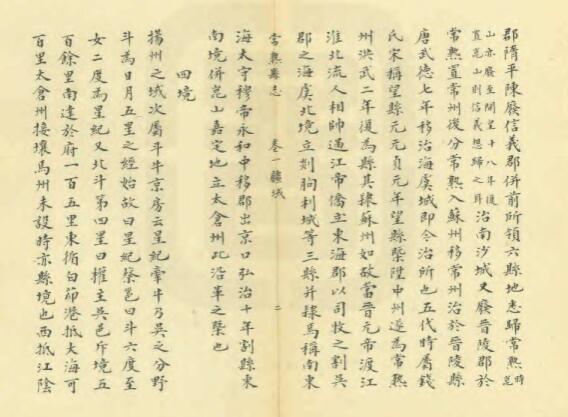 郡隋平陳廢信義郡併前所領六縣地悉歸常熟時崑
山亦廢至開皇十八年復置崑山則信義想歸之耳治南沙城又廢晉陵郡於
常熟置常州後分常熟入蘇州移常州治於晉陵縣
唐武德七年移治海虞城即今治所也五代時屬錢
氏宋稱望縣元元貞元年望縣槩陞中州遂為常熟
州洪武二年復為縣其隸蘇州如故當晉元帝渡江
淮北流人相帥過江帝僑立東海郡以司牧之割吳
郡之海虞北境立郯朐利城等三縣并隸焉稱南東
常熟縣志 卷一疆域 二
海太守穆帝永和中移郡出京口弘治十年割縣東
南境併崑山嘉定地立太倉州此沿革之槩也
四境
揚州之域次屬斗牛京房云星紀牽牛乃吳之分野
斗為日月五星之經始故曰星紀縣邑曰斗六度至
女二度為星紀又北斗第四星曰權主吳邑斥境五
百餘里南達於府一百五里東循白茆港抵大海可
百里太倉州接壤焉州未設時亦縣境也西抵江陰